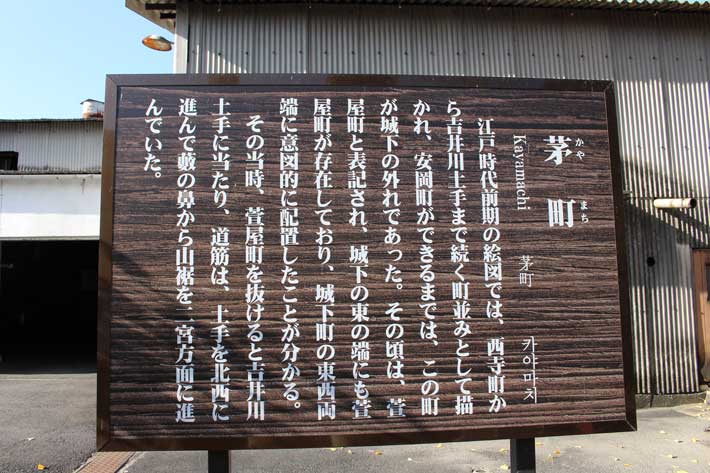 茅町
かや まち
Kayamachi 茅町 카야마치
江戸時代前期の絵図では、西寺町か
ら吉井川土手まで続く町並みとして描
かれ、安岡町ができるまでは、この町
が城下の外れであった。その頃は、萱
屋町と表記され、城下の東の端にも萱
屋町が存在しており、城下町の東西両
端に意図的に配置したことが分かる。
その当時、萱屋町を抜けると吉井川
土手に当たり、道筋は、土手を北西に
進んで藪の鼻から山裾を二宮方面に進
んでいた。